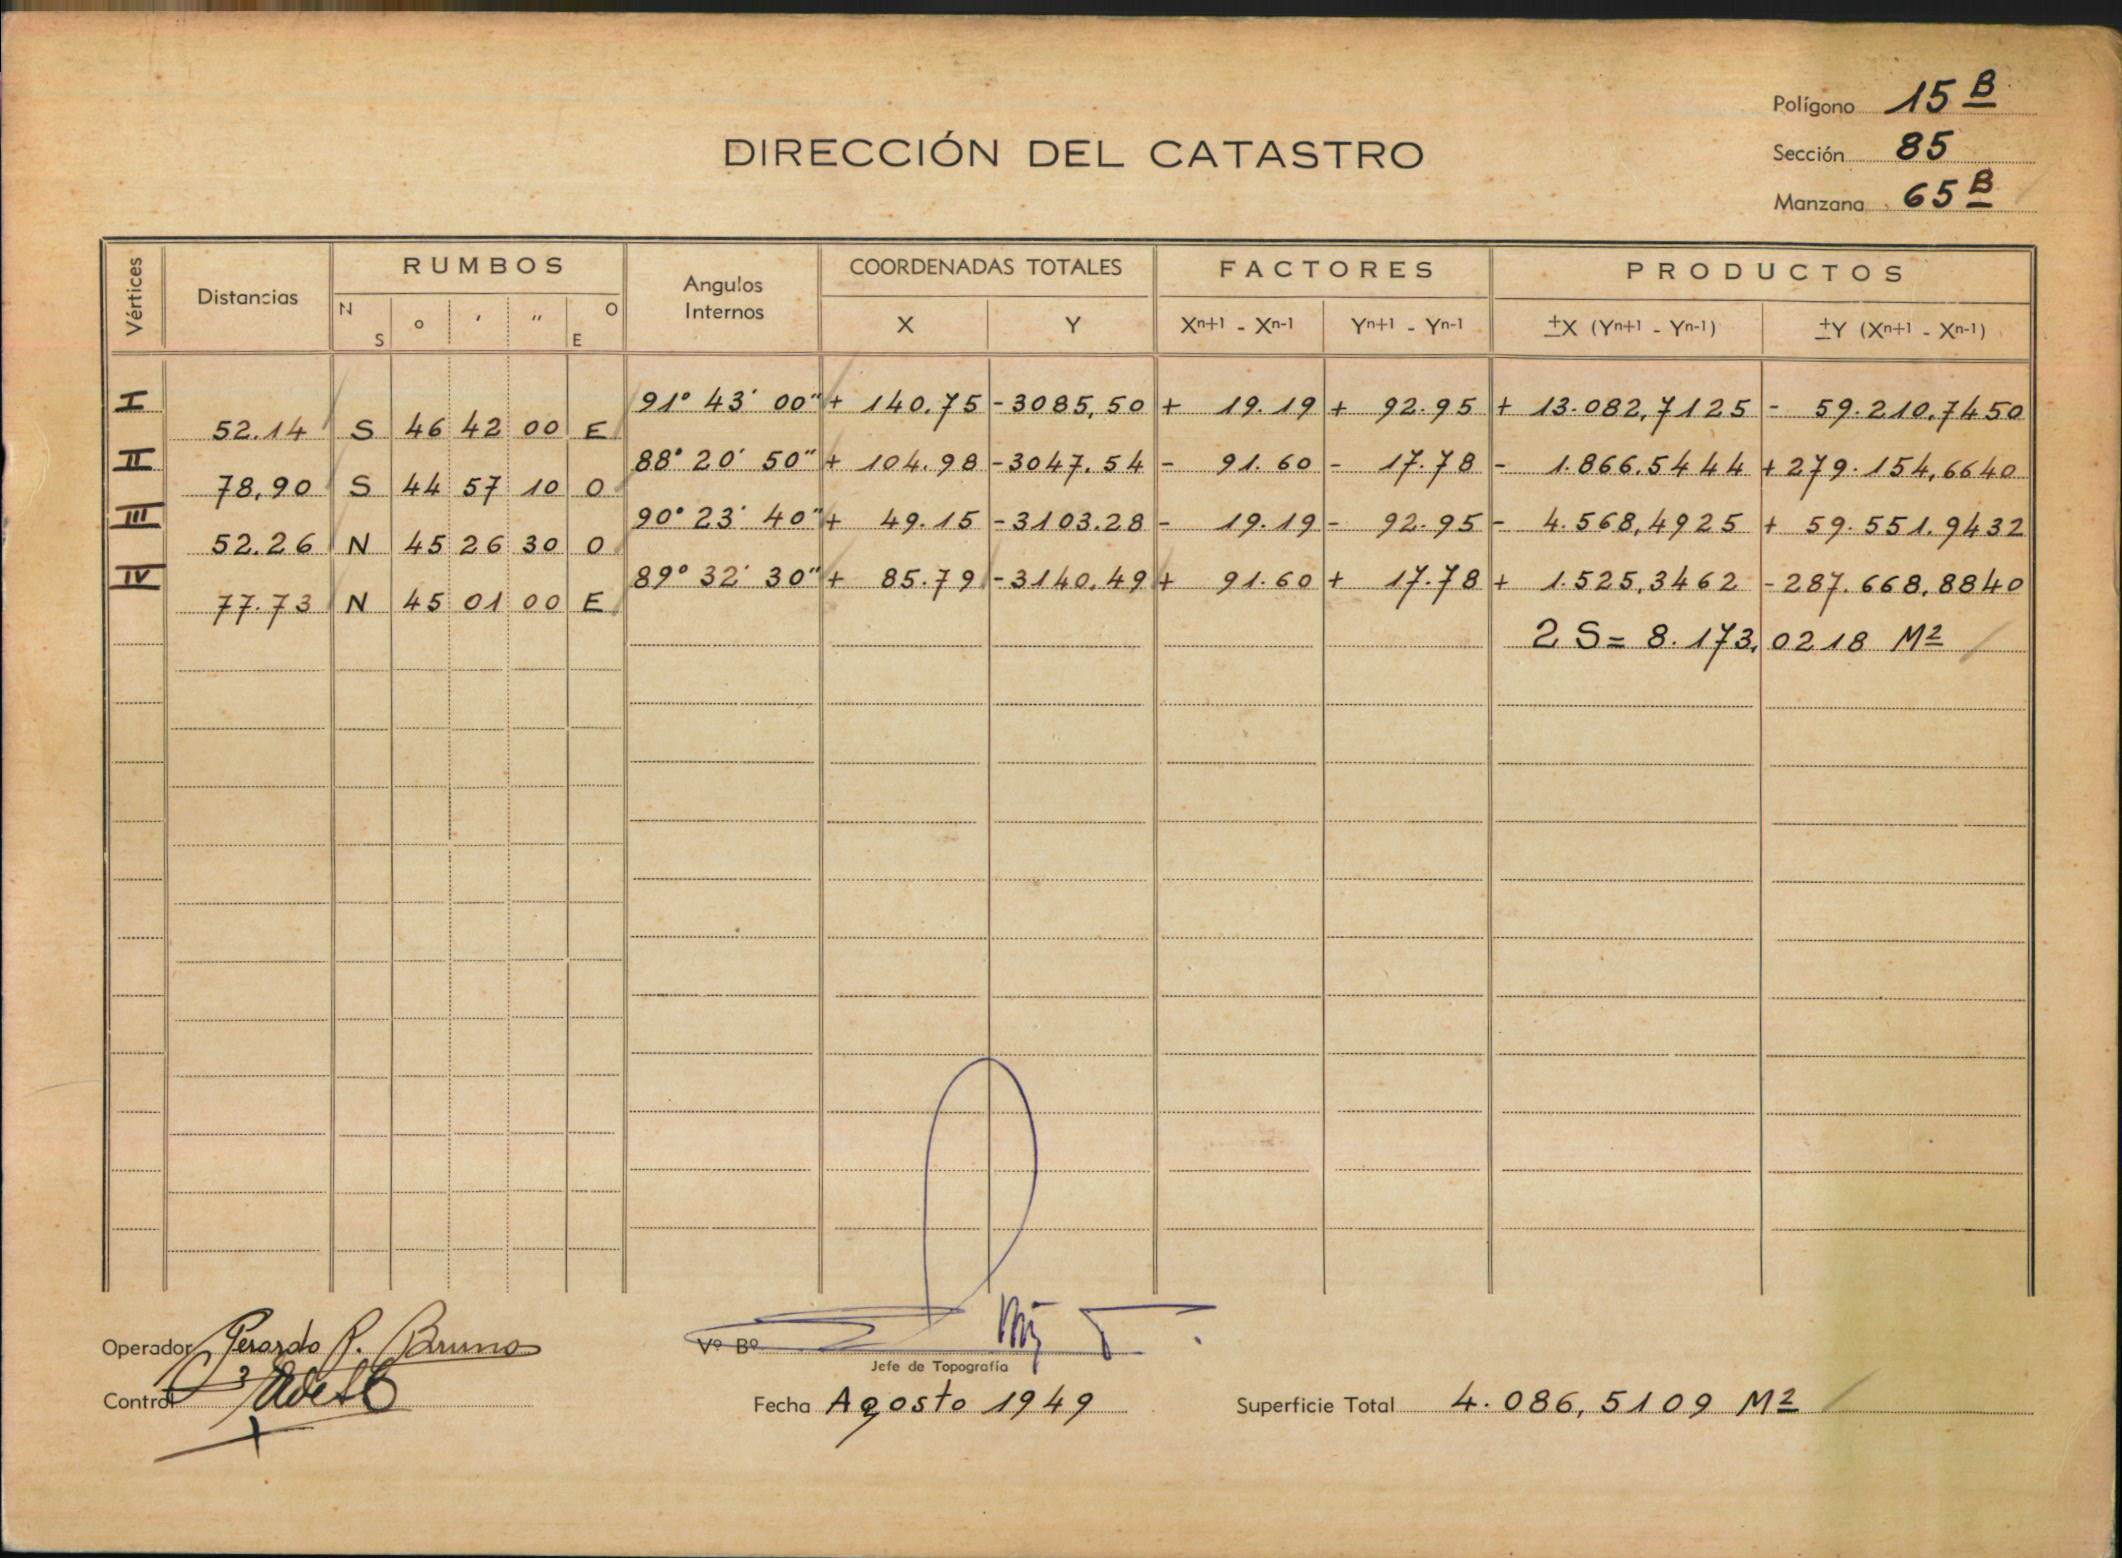 Polígono 15 B
DIRECCIÓN DEL CATASTRO
Sección 85
Manzana 65 B
Vértices Distancias RUMBOS Angulos Internos COORDENADAS TOTALES FACTORES PRODUCTOS
N S ° ' " O E X Y Xn+1 - Xn-1 Yn+1 - Yn-1 ±X (Yn+1 - Yn-1) ±Y (Xn+1 - Xn-1)
I 91° 43' 00" + 140.75 -3085,50 + 19.19 + 92.95 + 13.082,7125 - 59.210,7450
52.14 S 46 42 00 E
II 88° 20' 50" + 104.98 -3047.54 - 91.60 - 17.78 - 1.866.5444 +279.154,6640
78,90 S 44 57 10 O
III 90° 23' 40" + 49.15 -3103.28 - 19.19 - 92.95 - 4.568,4925 + 59.551.9432
52.26 N 45 26 30 O
IV 89° 32' 30" + 85.79 -3140.49 + 91.60 + 17.78 + 1.525,3462 -287.668,8840
77.73 N 45 01 00 E
2 S= 8.173,0218 M2
Operador Gerardo R. Bruno
Vº Bº
Jefe de Topografía
Control
Fecha Agosto 1949
Superficie Total 4.086,5109 M2